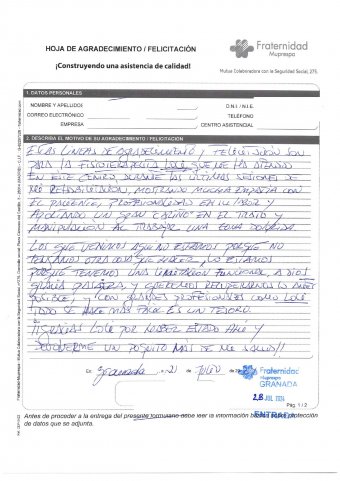 HOJA DE AGRADECIMIENTO / FELICITACIÓN
¡Construyendo una asistencia de calidad!
Fraternidad
Muprespa
Mutua Colaboradora con la Seguridad Social, 275
1. DATOS PERSONALES
NOMBRE Y APELLIDOS
D.N.I. / N.I.E.
CORREO ELECTRÓNICO
TELÉFONO
EMPRESA
CENTRO ASISTENCIAL
2. DESCRIBA EL MOTIVO DE SU AGRADECIMIENTO / FELICITACIÓN
ESTAS LINEAS DE AGRADECIMIENTO Y FELICITACION SON
PARA LA FISIOTERAPEUTA LOLE, QUE ME HA ATENDIDO
EN ESTE CENTRO, DURANTE LAS ÚLTIMAS SESIONES DE
MI REHABILITACION, MOSTRANDO MUCHA EMPATIA CON
EL PACIENTE, PROFESIONALIDAD EN SU LABOR Y
APLICANDO UN GRAN CARIÑO EN EL TRATO Y
MANIPULACION AL TRABAJAR UNA ZONA DOLORIDA
LOS QUE VENIMOS AQUÍ NO ESTAMOS PORQUE NO
TENGAMOS OTRA COSA QUE HACER, LO ESTAMOS
PORQUE TENEMOS UNA LIMITACION FUNCIONAL, A DIOS
GRACIAS PASAJERA, Y QUEREMOS RECUPERARNOS LO ANTES
POSIBLE, Y CON GRANDES PROFESIONALES COMO LOLE
TODO SE HACE MAS FACIL ES UN TESORO.
¡¡GRACIAS LOLE POR HABER ESTADO AHI Y
DEVOLVERME UN POQUITO MAS DE MI SALUD!!
En Granada a 21 de Julio de 20
Fraternidad
Muprespa
GRANADA
28 JUL 2024
Pág. 1 / 2
ENTRADA
Antes de proceder a la entrega del presente formulario debe leer la información básica sobre protección
de datos que se adjunta.